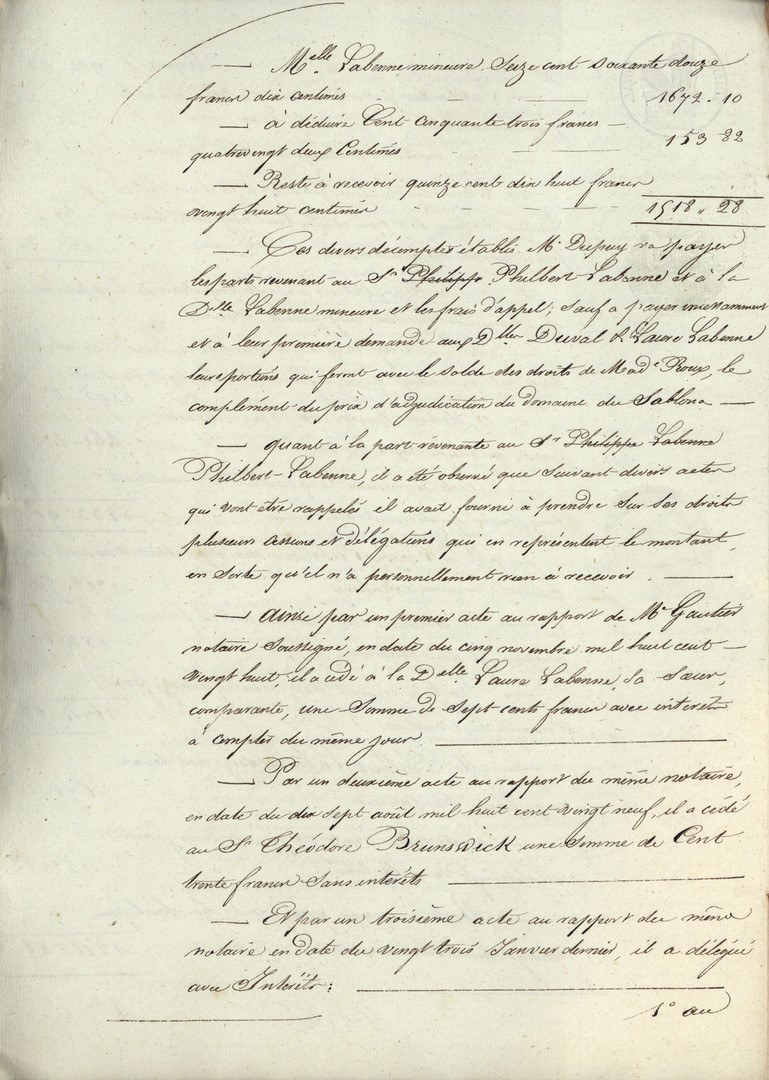 — Melle. Labenne mineure. Seize cent soixante douze
francs dix centimes 1672 . 10
— à déduire Cent cinquante trois francs —
quatre vingt deux Centimes 153 82
— Reste à recevoir quinze cent dix huit francs
vingt huit centimes 1518 " 28
— Ces divers décomptes établis Mr. Dupuy va payer
les parts revenant au Sr Philippe Philbert-Labenne et à la
Dlle Labenne mineure et les frais d'appel ; sauf a payer incessamment
et à leur première demande aux Dlles Duval & Laure Labenne
leurs portions qui feront avec le solde des droits de Made Roux, le
complément du prix d'adjudication du domaine du Sablona —
— quant à la part revenante au Sr Philippe Labenne
Philbert-Labenne, il a été observé que suivant divers actes
qui vont être rappelés il avait fourni à prendre sur ses droits
plusieurs cessions et délégations qui en représentent le montant,
en sorte qu'il n'a personnellement rien à recevoir . —
— ainsi par un premier acte au rapport de Me Gautier
notaire soussigné, en date du cinq novembre mil huit cent —
vingt huit, il a cédé à la Delle Laure Labenne, sa sœur,
comparante, une somme de sept cents francs avec intérêts
à compter du même jour —
— Par un deuxième acte au rapport du même notaire,
en date du dix sept août mil huit cent vingt neuf, il a cédé
au Sr Théodore Brunswick une somme de Cent
trente francs sans intérêts —
— Et par un troisième acte au rapport du même
notaire en date du vingt trois Janvier dernier, il a délégué
avec Intérêts : —
1° au